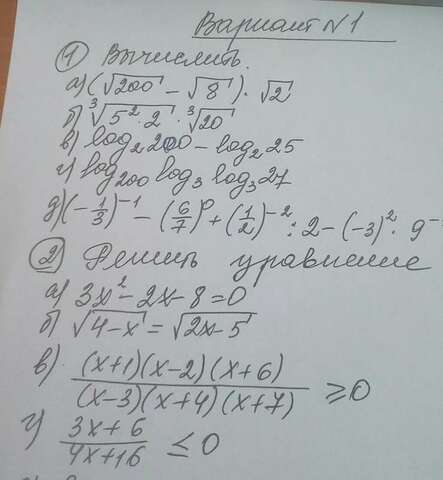 Вариант №1
① Вычислить.
а) (√200 − √8) · √2
б) ∛(5² · 2) · ∛20
в) log₂ 200 − log₂ 25
г) log₂₀₀ log₃ log₃ 27
д) (−1/3)⁻¹ − (6/7)⁰ + (1/2)⁻² : 2 − (−3)² · 9⁻
② Решить уравнение
а) 3x² − 2x − 8 = 0
б) √(4−x) = √(2x−5)
в) (x+1)(x−2)(x+6) / (x−3)(x+4)(x+7) ≥ 0
г) 3x+6 / 4x+16 ≤ 0